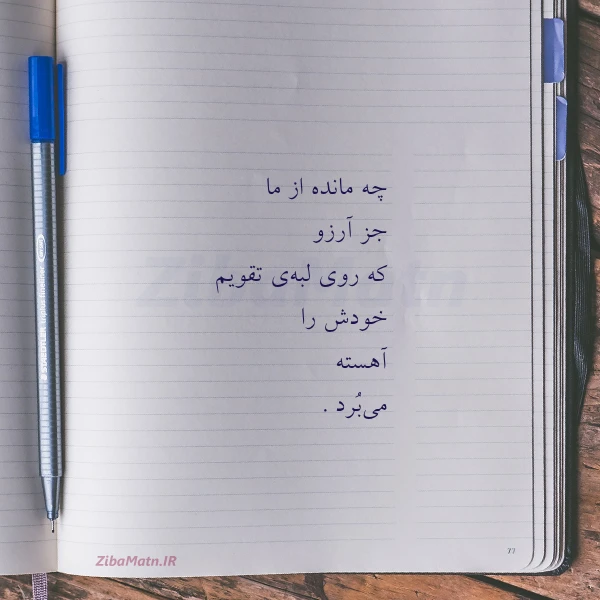 چه مانده از ما
جز آرزو
که روی لبه‌ی تقویم
خودش را
آهسته
می‌بُرد .
ZibaMatn
ZibaMatn.IR
77